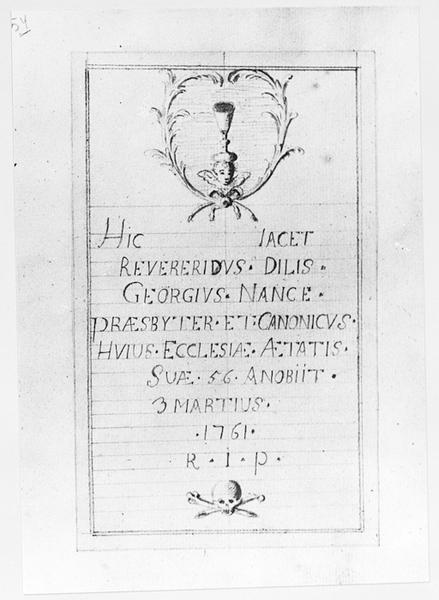 54
HIC IACET
REVERERIDVS · DILIS ·
GEORGIVS · NANCE ·
PRÆSBYTER · ET · CANONICVS ·
HVIUS · ECCLESIÆ · ÆTATIS ·
SUÆ · 56 · ANOBIIT ·
3 MARTIUS ·
· 1761 ·
R · I · P ·